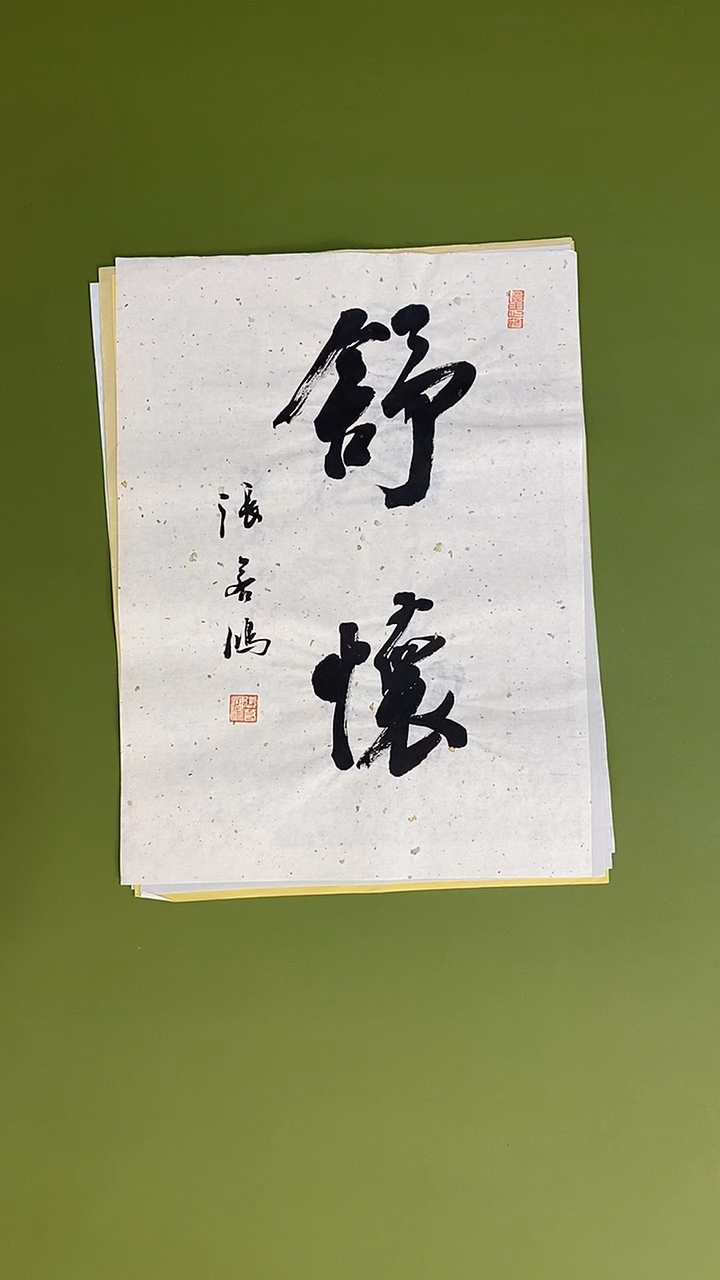 舒懷
張善鴻